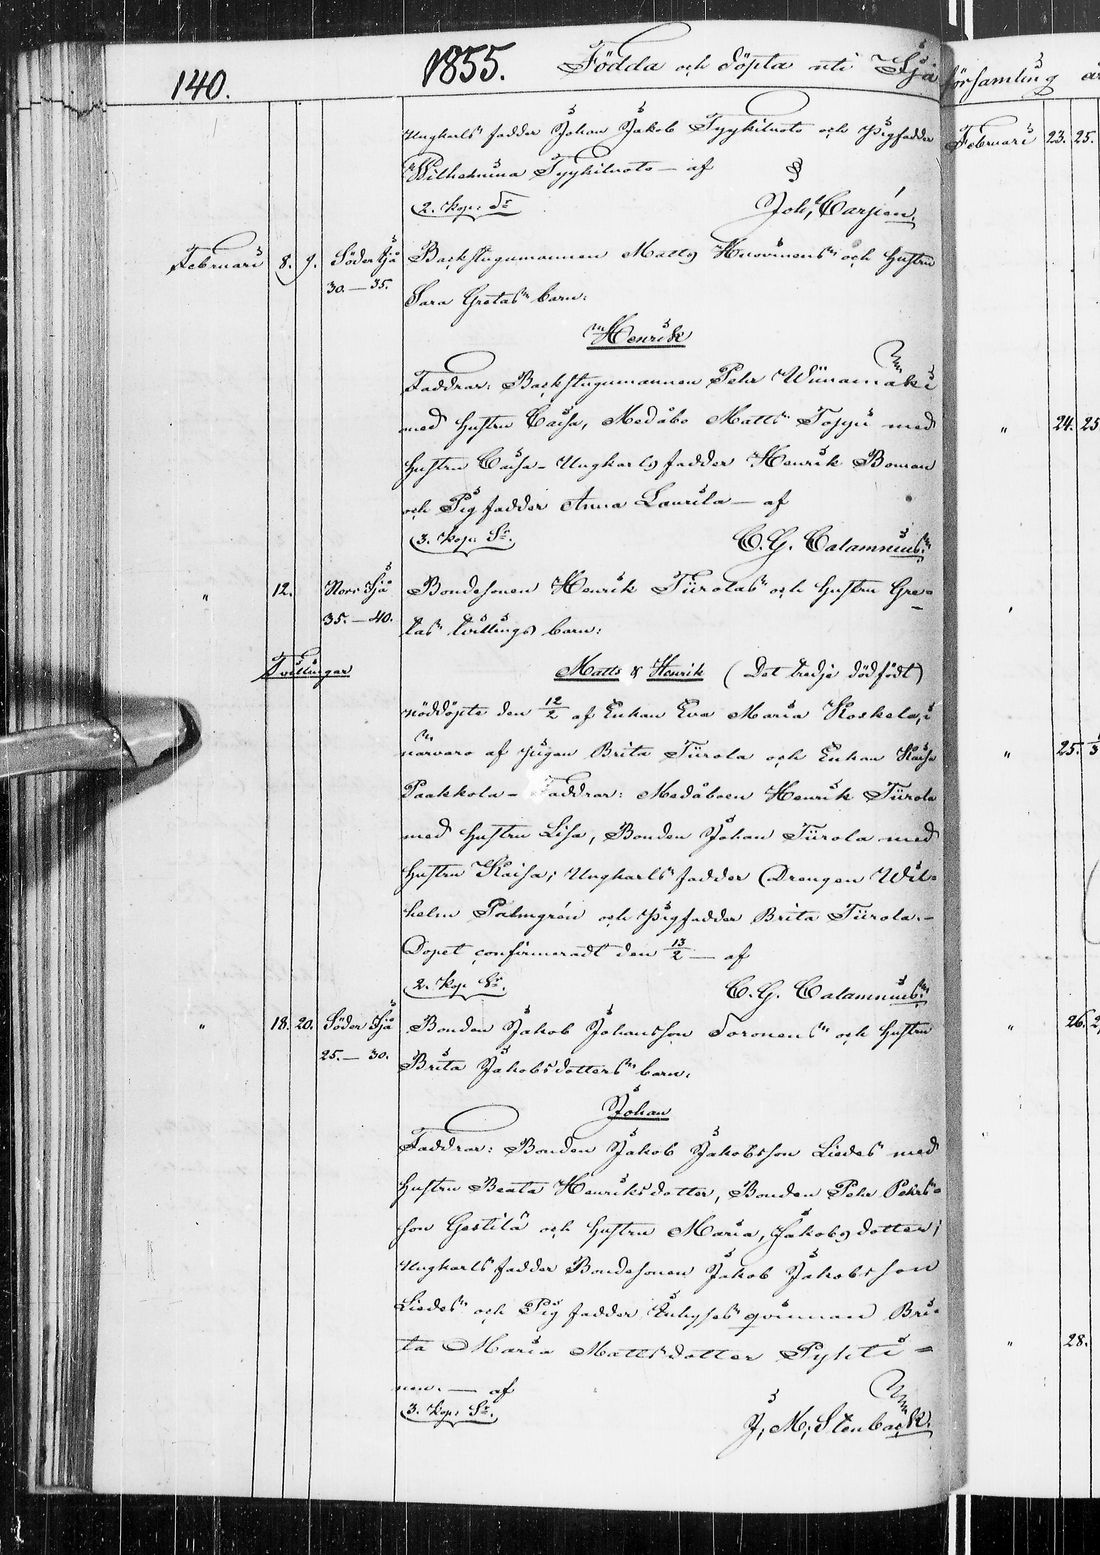 140. 1855. Födda och döpta uti Ijå församling år
Ungkarls fadder Johan Jakob Tyykiluoto och Pigfadder
Wilhelmina Tyykiluoto — af
2. Kop. Sr Joh. Carpén.
Februari 8. 9. Söder Ijå Backstugumannen Matts och hustru
30. — 35. Sara Gretas barn:
Henrik
Faddrar: Backstugumannen Pehr Wiinamäki
med hustru Caisa, Medåbo Matts med
hustru Caisa — Ungkarls fadder Henrik Boman
och Pig fadder Anna Laurila — af
3. Kop. Sr. C. G. Calamnius.
" 12. Norr Ijå Bondesonen Henrik Tiirolas och hustru Gre-
35. — 40. tas tvillings barn:
Tvillingar Matts & Henrik (Det tredje dödfödt)
nöddöpte den 12/2 af Enkan Eva Maria Koskela, i
närvaro af Pigan Brita Tiirola och Enkan Kaisa
Paakkola — Faddrar: Medåboen Henrik Tiirola
med hustru Lisa, Bonden Johan Tiirola med
hustru Kaisa; Ungkarls fadder Drengen Wil-
helm Palmgrén och Pigfadder Brita Tiirola. —
Dopet confirmeradt den 13/2 — af
2. Kop. Sr. C. G. Calamnius.
" 18. 20. Söder Ijå Bonden Jakob Johansson och hustru
25. — 30. Brita Jakobsdotters barn.
Johan
Faddrar: Bonden Jakob Jakobsson Liedes med
hustru Beata Henriksdotter, Bonden Pehr Pehrs-
son Gestilä och hustru Maria, Jakobsdotter;
Ungkarls fadder Bondesonen Jakob Jakobsson
Liedes och Pig fadder qvinnan Bri-
ta Maria Mattsdotter
nen. — af
3. Kop. Sr. J. M. Stenbäck.
Februari 23. 25.
" 24. 25
" 25.
" 26.
" 28.